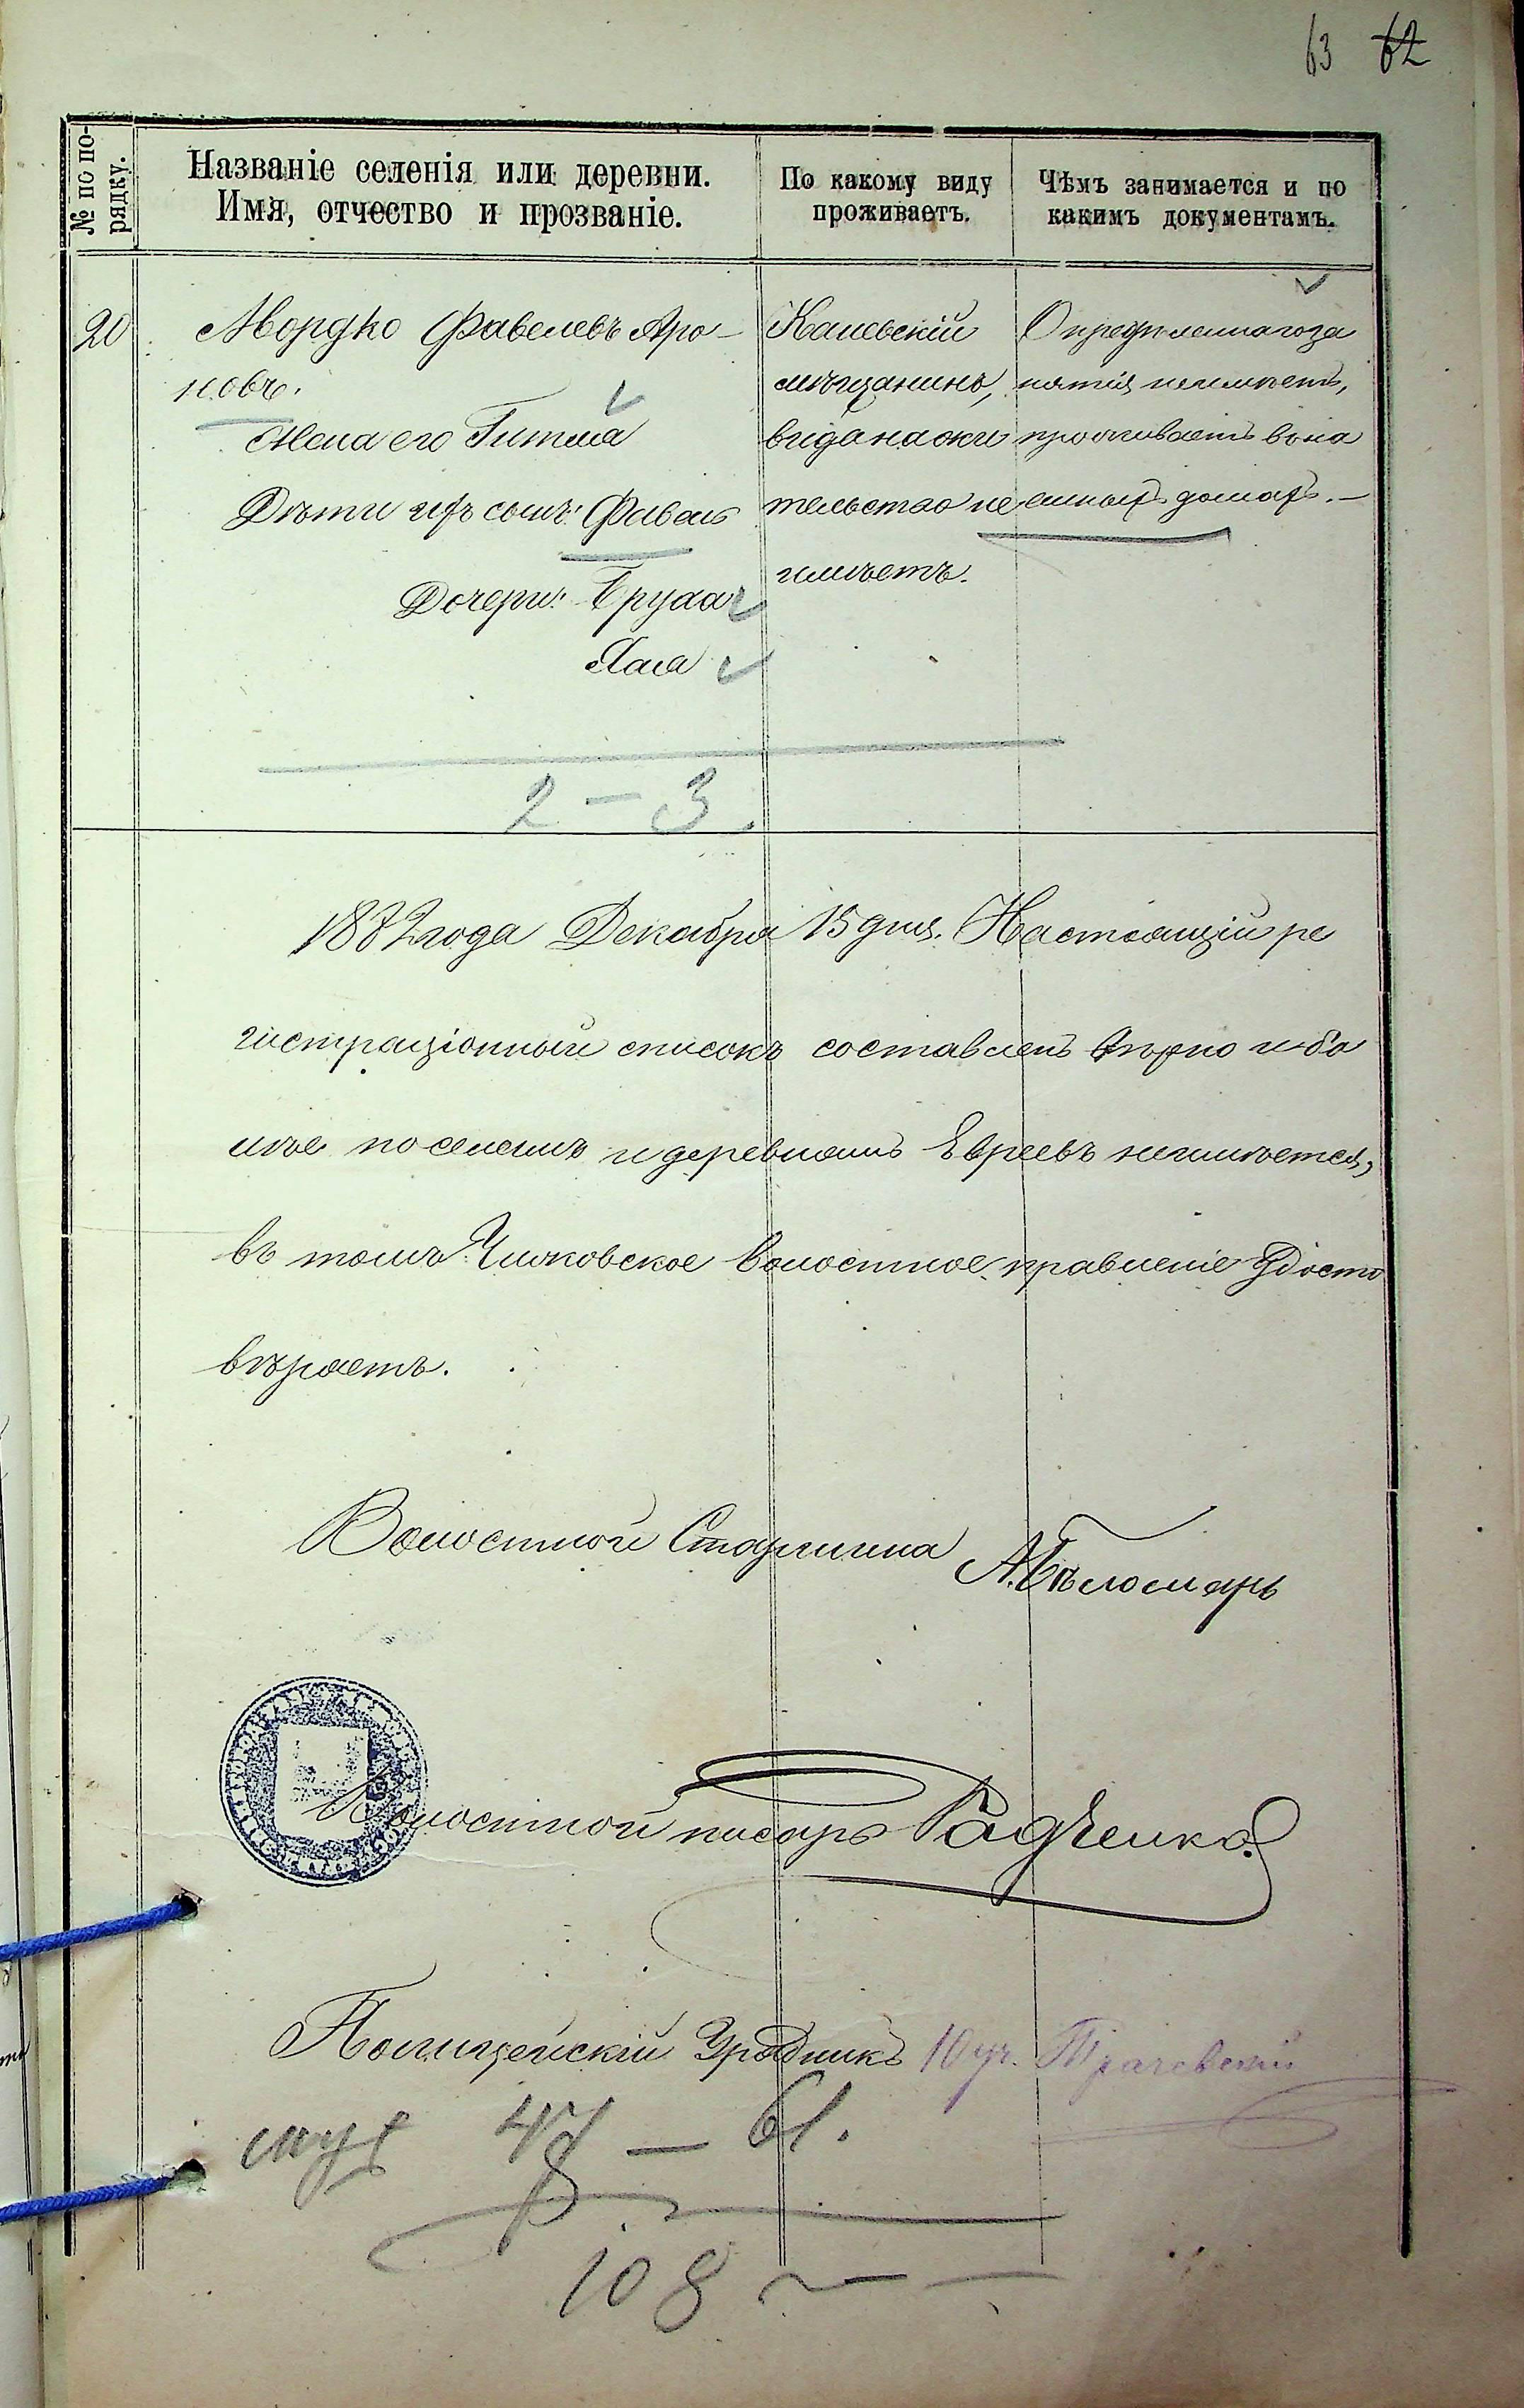 63 62
№ по по-
рядку.
Названіе селенія или деревни.
Имя, отчество и прозваніе.
По какому виду
проживаетъ.
Чѣмъ занимается и по
какимъ документамъ.
20
Мордко Фавелевъ Аро-
новъ.
Жена его Гитля
Дѣти ихъ сынъ: Фавель
Дочери: Бруха
Хая
Каневскій
мѣщанинъ,
вида на жи
тельство не
имѣетъ.
Опредѣленнаго за
нятія не имѣетъ,
проживаетъ въ на
емныхъ домахъ.—
2 — 3.
1882 года Декабря 15 дня. Настоящій ре
гистраціонный списокъ составленъ вѣрно и бо
лѣе по селамъ и деревнямъ Евреевъ не имѣется,
въ томъ волостное правленіе Удосто
вѣряетъ.
Волостной Старшина А. Бѣломарь
Волостной писарь Радченко.
Полицейскій Урядникъ 10 уч.
муж 47 — 61.
108